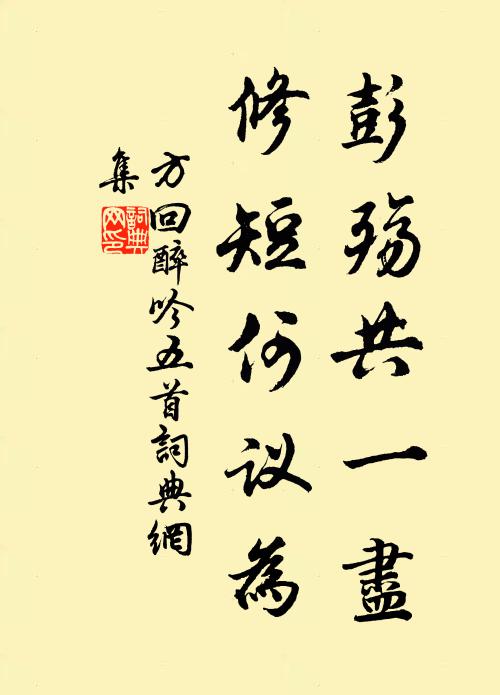 彭殇共一盡
修短何议為
方回醉吟五首詞典網
集
詞典
网印